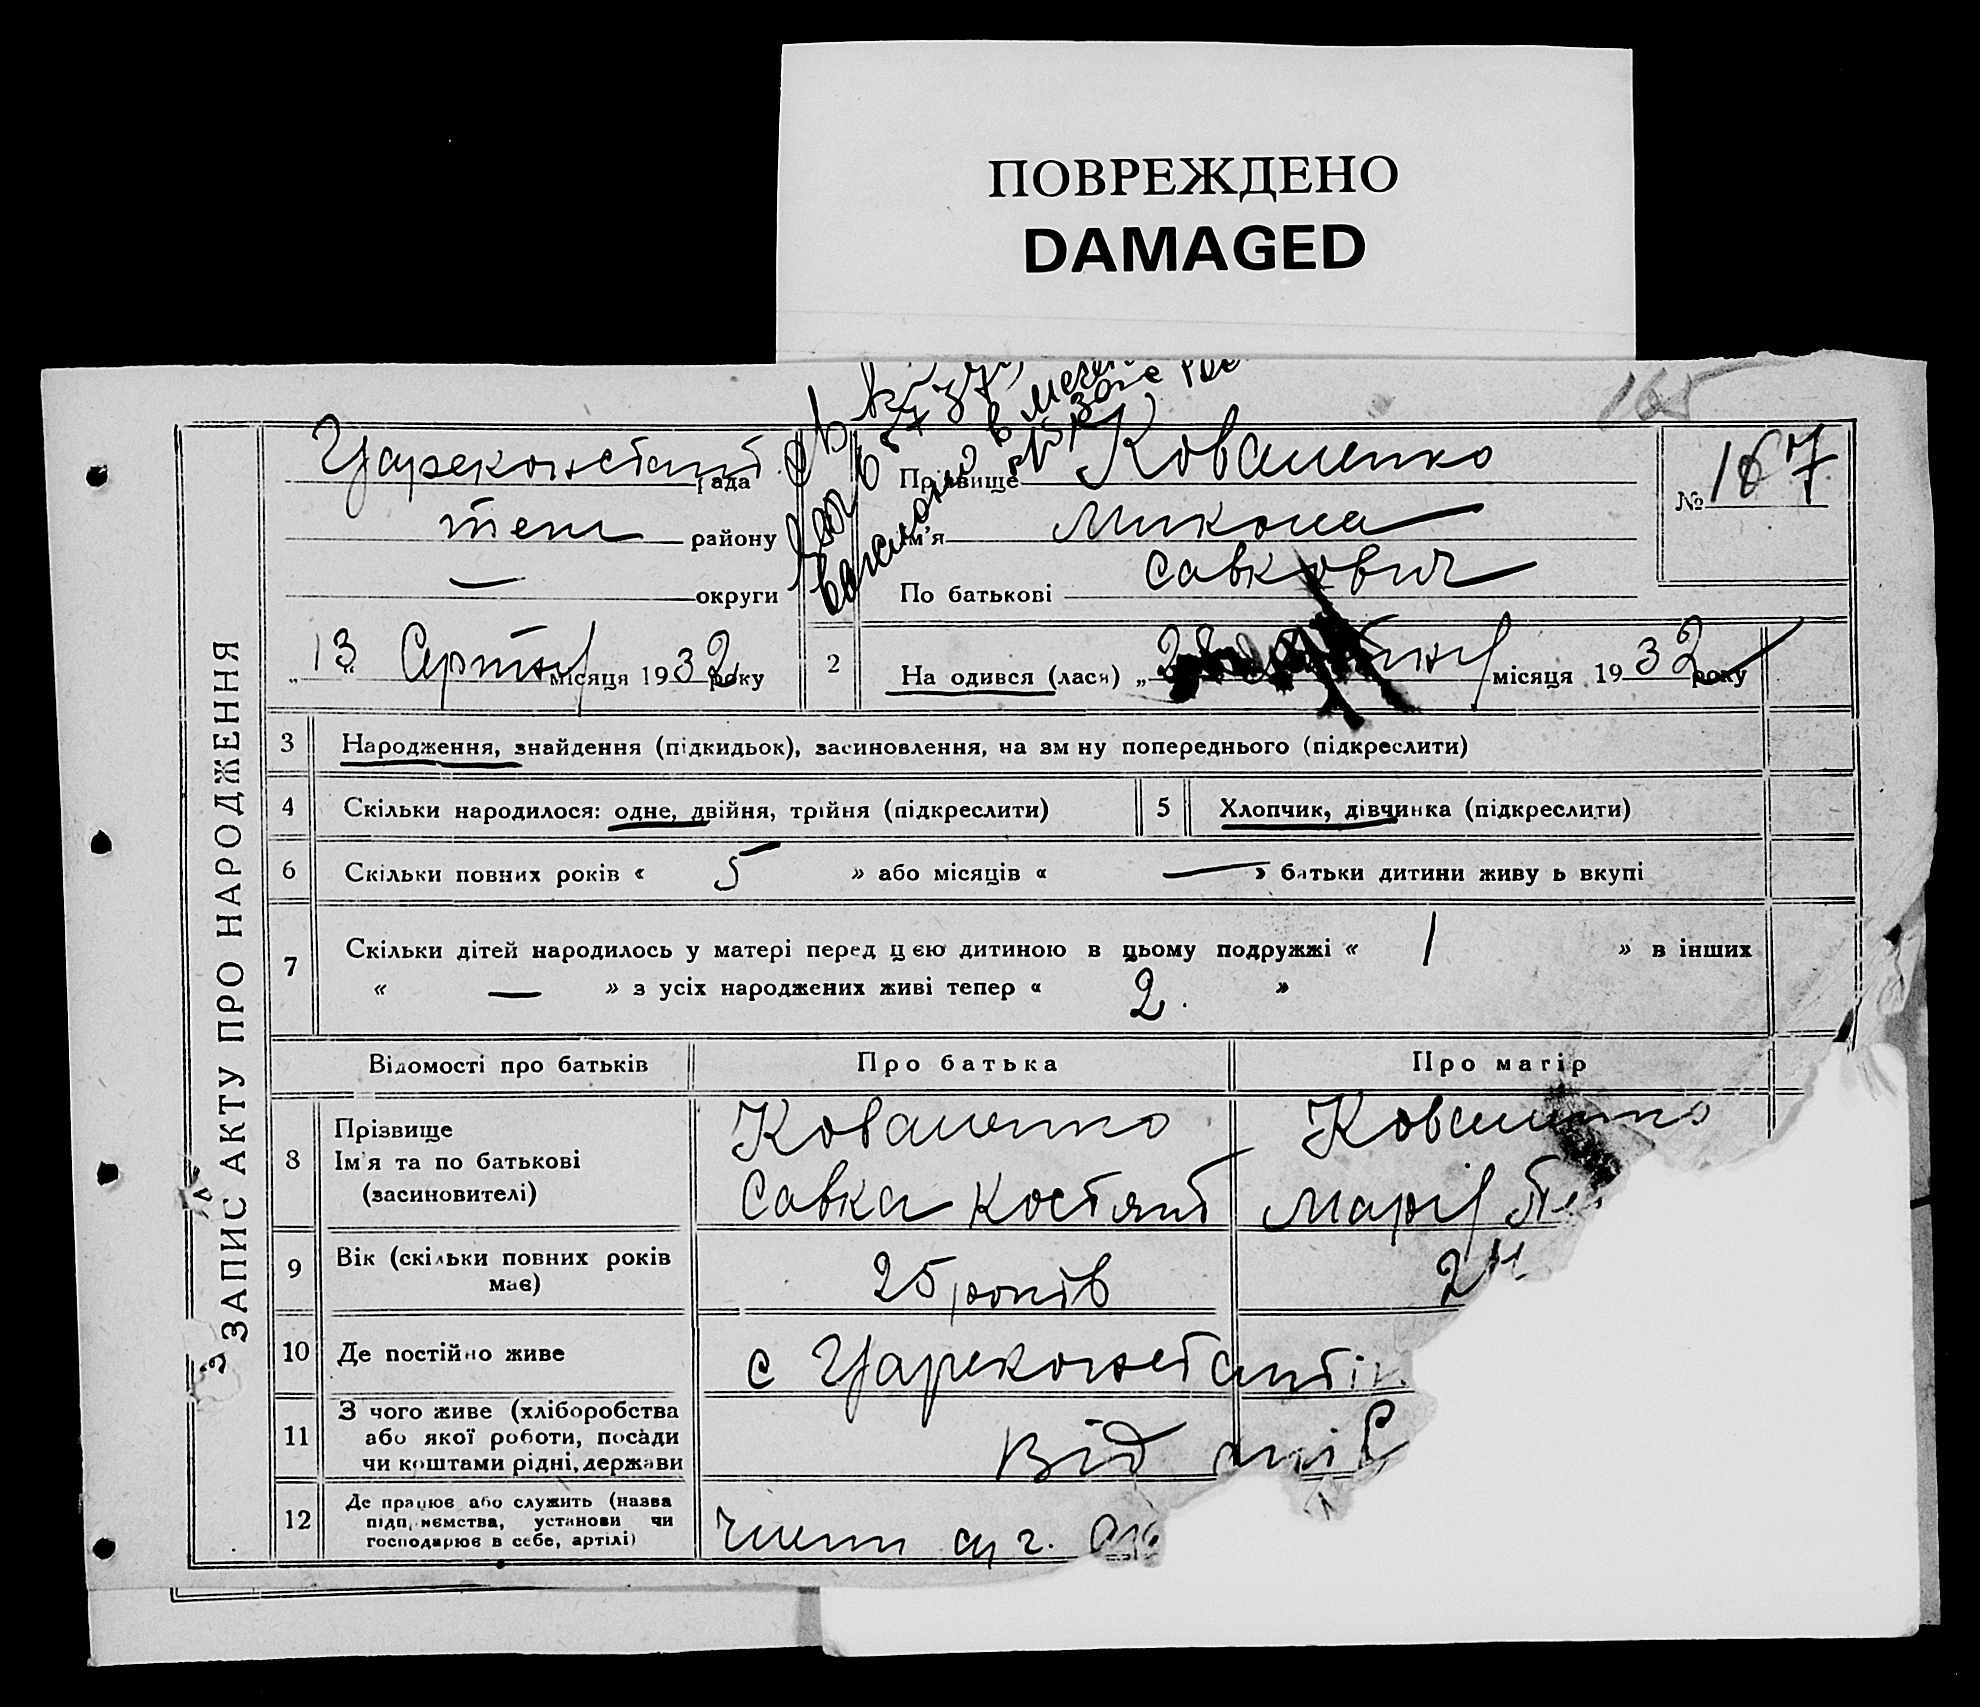 ПОВРЕЖДЕНО
DAMAGED
165
Цареконстант. рада
району
— округи
„13“ Серпня місяця 1932 року
Прізвище Коваленко
Ім'я Микола
По батькові Савкович
№ 167
2 На одився (лася) „ місяця 1932 року
ЗАПИС АКТУ ПРО НАРОДЖЕННЯ
3 Народження, знайдення (підкидьок), засиновлення, на зм ну попереднього (підкреслити)
4 Скільки народилося: одне, двійня, трійня (підкреслити)
5 Хлопчик, дівчинка (підкреслити)
6 Скільки повних років « 5 » або місяців « — » батьки дитини живу ь вкупі
7 Скільки дітей народилось у матері перед цією дитиною в цьому подружжі « 1 » в інших
« — » з усіх народжених живі тепер « 2. »
Відомості про батьків Про батька Про матір
8 Прізвище
Ім'я та по батькові
(засиновителі)
Коваленко
Савка Костянт
Коваленко
Марія
9 Вік (скільки повних років
має)
25 років
24
10 Де постійно живе
с Цареконстантін
11 З чого живе (хліборобства
або якої роботи, посади
чи коштами рідні, держави
Від
12 Де працює або служить (назва
підприємства, установи чи
господарює в себе, артілі)
член